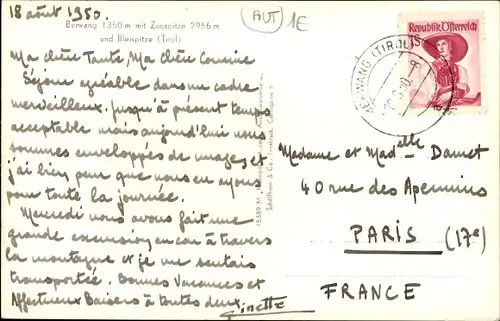 18 août 1950.
Berwang 1350 m mit Zugspitze 2956 m
und Bleispitze (Tirol)
AUT 1E
Ma chère Tante, Ma chère Cousine
Séjour agréable dans un cadre
merveilleux. Jusqu'à présent temps
acceptable mais aujourd'hui nous
sommes enveloppés de nuages, et
j'ai bien peur que nous en ayons
pour toute la journée.
Mercredi nous avons fait une
grande excursion en car à travers
la montagne et je me sentais
transportée. Bonnes Vacances et
Affectueux Baisers à toutes deux.
Ginette
Republik Österreich
BERWANG (TIROL)
Madame et Mad^elle Damet
40 rue des Apennins
PARIS (17e)
FRANCE